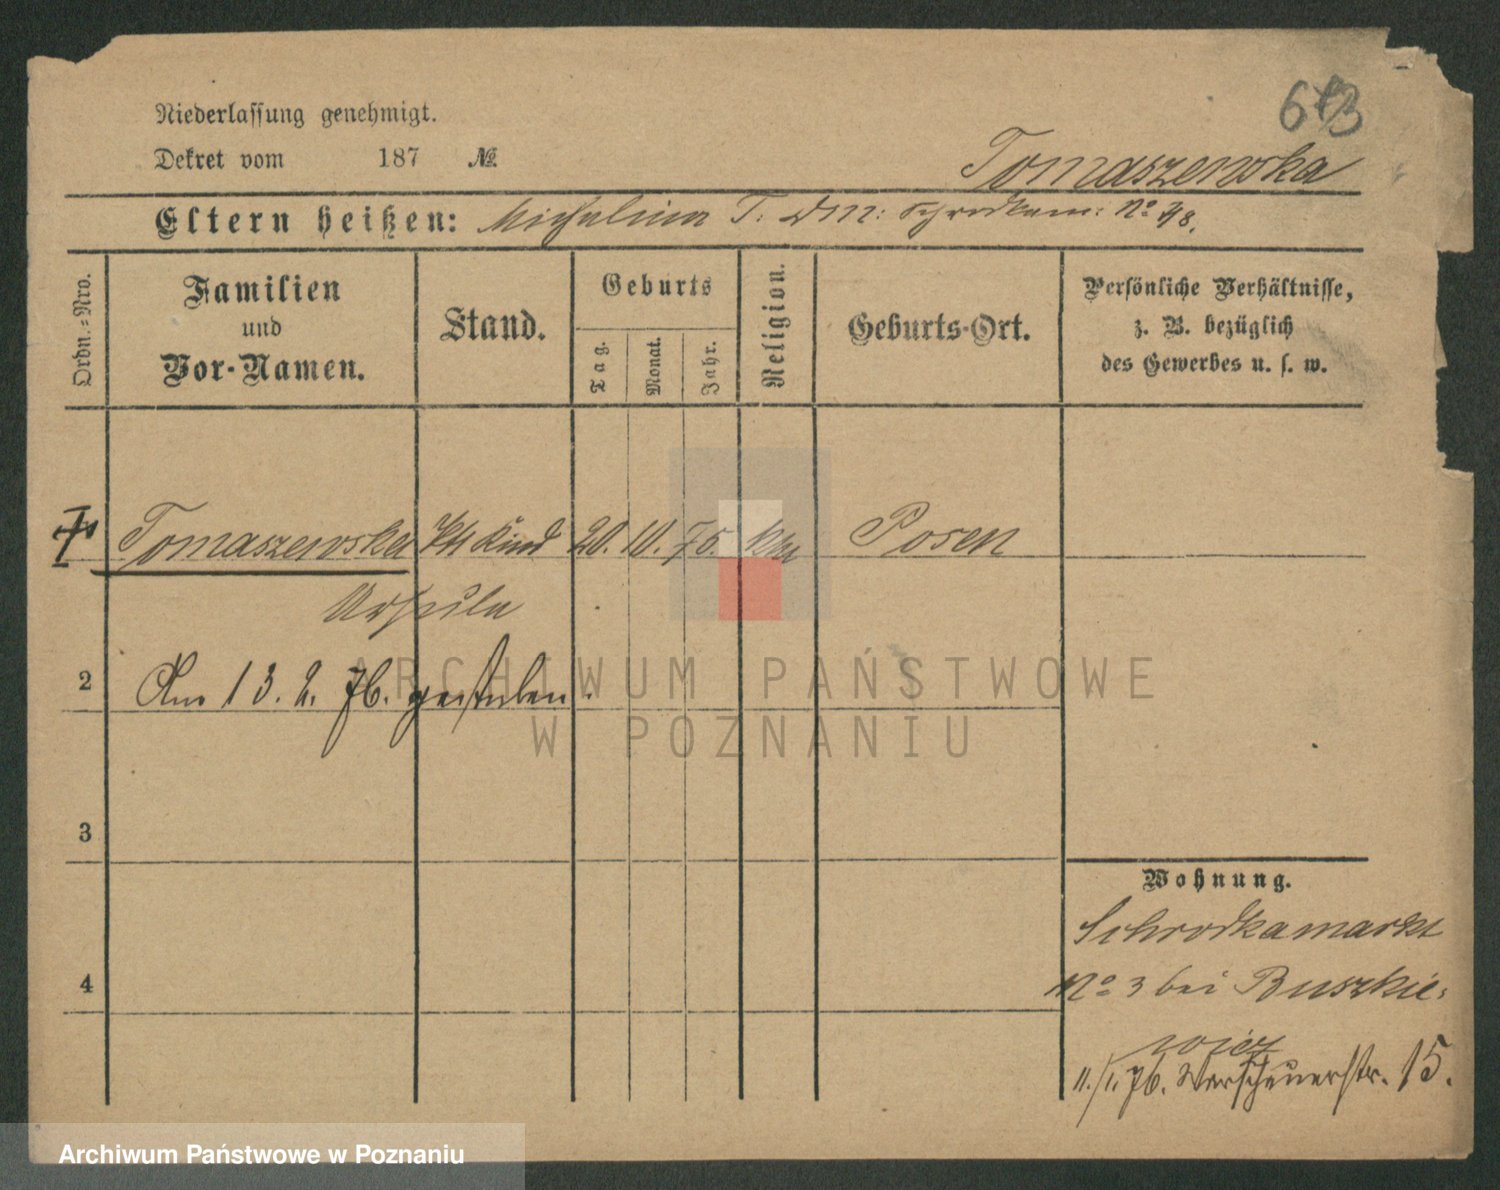 673
Niederlassung genehmigt.
Dekret vom 187 №
Tomaszewska
Eltern heißen: Michalina T. DM: Schrodkam: No 7/8.
Ordn.=Nro.
Familien
und
Vor-Namen.
Stand.
Geburts
Tag.
Monat.
Jahr.
Religion.
Geburts-Ort.
Persönliche Verhältnisse,
z. B. bezüglich
des Gewerbes u. s. w.
Tomaszewska Kind 20. 10. 75. kth Posen
Ursula
2 Am 13. 2. 76. gestorben.
3
4
Wohnung.
Schrodkamarkt
No 3 bei Buszkie:
wicz
11./1. 76. Warschauerstr. 15.
ARCHIWUM PAŃSTWOWE
W POZNANIU
Archiwum Państwowe w Poznaniu